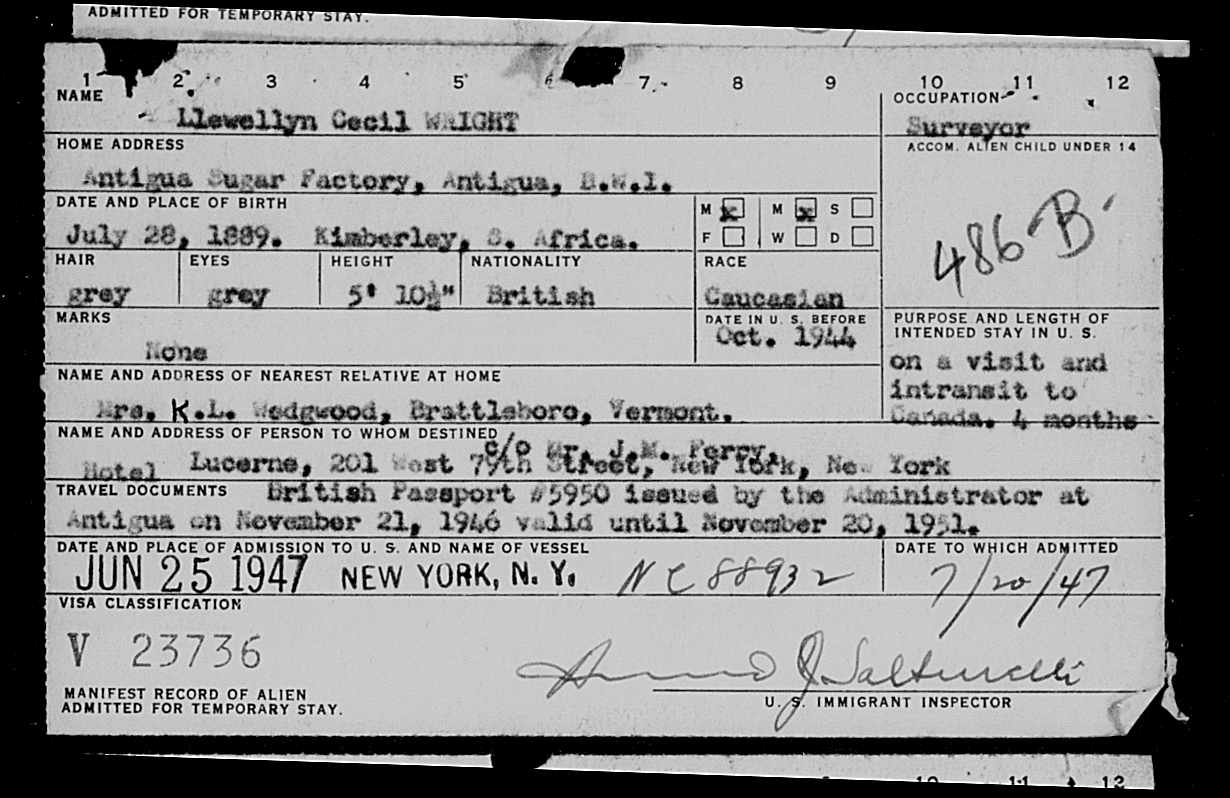 ADMITTED FOR TEMPORARY STAY.
1 2 3 4 5 6 7 8 9 10 11 12
NAME
Llewellyn Cecil WRIGHT
OCCUPATION
Surveyor
HOME ADDRESS
Antigua Sugar Factory, Antigua, B.W.I.
ACCOM. ALIEN CHILD UNDER 14
486 B
DATE AND PLACE OF BIRTH
July 28, 1889. Kimberley, S. Africa.
M x M x S
F W D
HAIR EYES HEIGHT NATIONALITY RACE
grey grey 5' 10½" British Caucasian
MARKS
None
DATE IN U. S. BEFORE
Oct. 1944
PURPOSE AND LENGTH OF
INTENDED STAY IN U. S.
on a visit and
intransit to
Canada. 4 months
NAME AND ADDRESS OF NEAREST RELATIVE AT HOME
Mrs. K.L. Wedgwood, Brattleboro, Vermont.
NAME AND ADDRESS OF PERSON TO WHOM DESTINED
c/o Mr. J.M. Percy,
Hotel Lucerne, 201 West 79th Street, New York, New York
TRAVEL DOCUMENTS British Passport #5950 issued by the Administrator at
Antigua on November 21, 1946 valid until November 20, 1951.
DATE AND PLACE OF ADMISSION TO U. S. AND NAME OF VESSEL
JUN 25 1947 NEW YORK, N. Y. NC 88932
DATE TO WHICH ADMITTED
7/20/47
VISA CLASSIFICATION
V 23736
U. S. IMMIGRANT INSPECTOR
MANIFEST RECORD OF ALIEN
ADMITTED FOR TEMPORARY STAY.
10 11 12